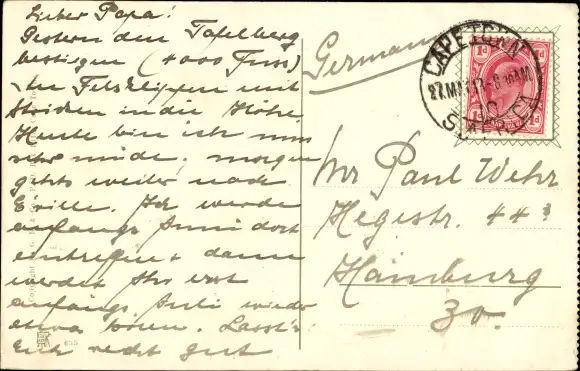 Lieber Papa!
Gestern den Tafelberg
bestiegen (4000 Fuss)
An Felsklippen mit
Stricken in die Höhe.
Heute bin ich nun
sehr müde, morgen
gehts weiter nach
E'ville. Ich werde
anfangs Juni dort
eintreffen + dann
werdet Ihr erst
anfangs Juli wieder
etwa hören. Lasst's
Euch recht gut
Germany
CAPE TOWN
27.MA
1d 1d
Mr Paul Wehr
Hegestr. 44
Hamburg
30.